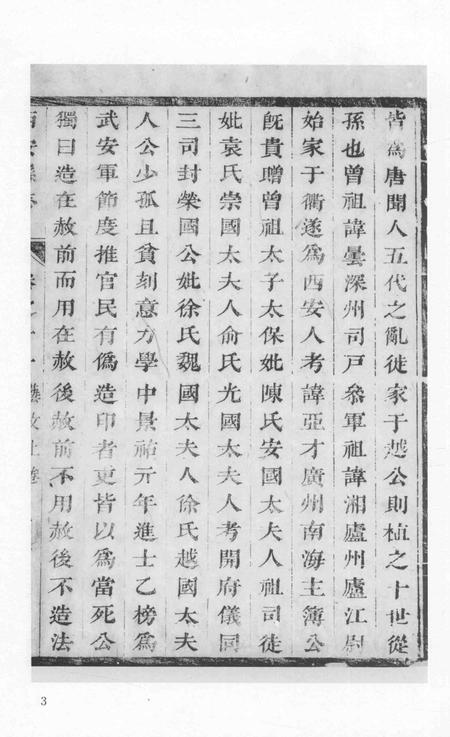 皆為唐聞人五代之亂徙家于越公則植之十世從
孫也曾祖諱曇深州司戶叅軍祖諱湘廬州廬江尉
始家于衢遂為西安人考諱亞才廣州南海主簿公
既貴贈曾祖太子太保妣陳氏安國太夫人祖司徒
妣袁氏崇國太夫人俞氏光國太夫人考開府儀同
三司封榮國公妣徐氏魏國太夫人徐氏越國太夫
人公少孤且貧刻意力學中景祐元年進士乙榜為
武安軍節度推官民有偽造印者吏皆以為當死公
獨曰造在赦前而用在赦後赦前不用赦後不造法
西安縣
3